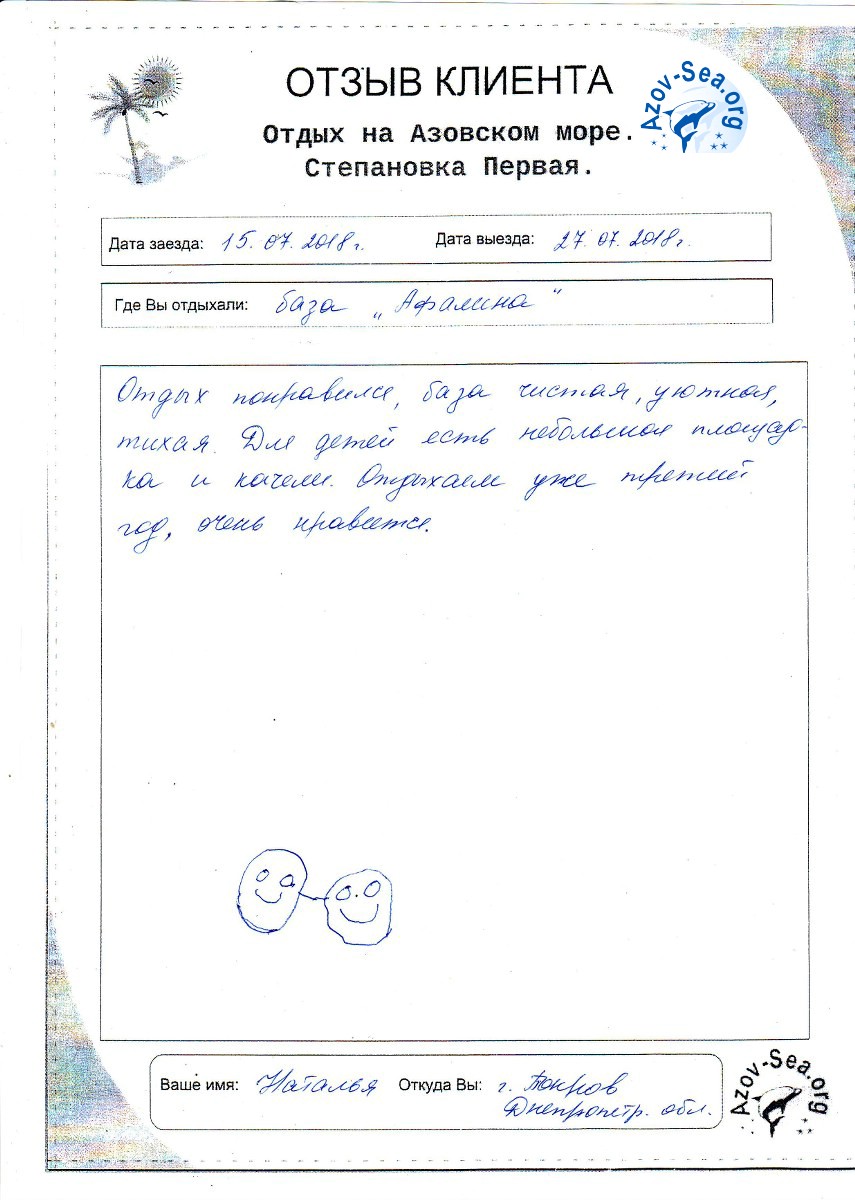 ОТЗЫВ КЛИЕНТА
Azov-Sea.org
Отдых на Азовском море.
Степановка Первая.
Дата заезда: 15.07.2018г. Дата выезда: 27.07.2018г.
Где Вы отдыхали: база „Афалина"
Отдых понравился, база чистая, уютная,
тихая. Для детей есть небольшая площад-
ка и качели. Отдыхаем уже третий
год, очень нравится.
Ваше имя: Наталья Откуда Вы: г. Покров
Днепропетр. обл.
Azov-Sea.org